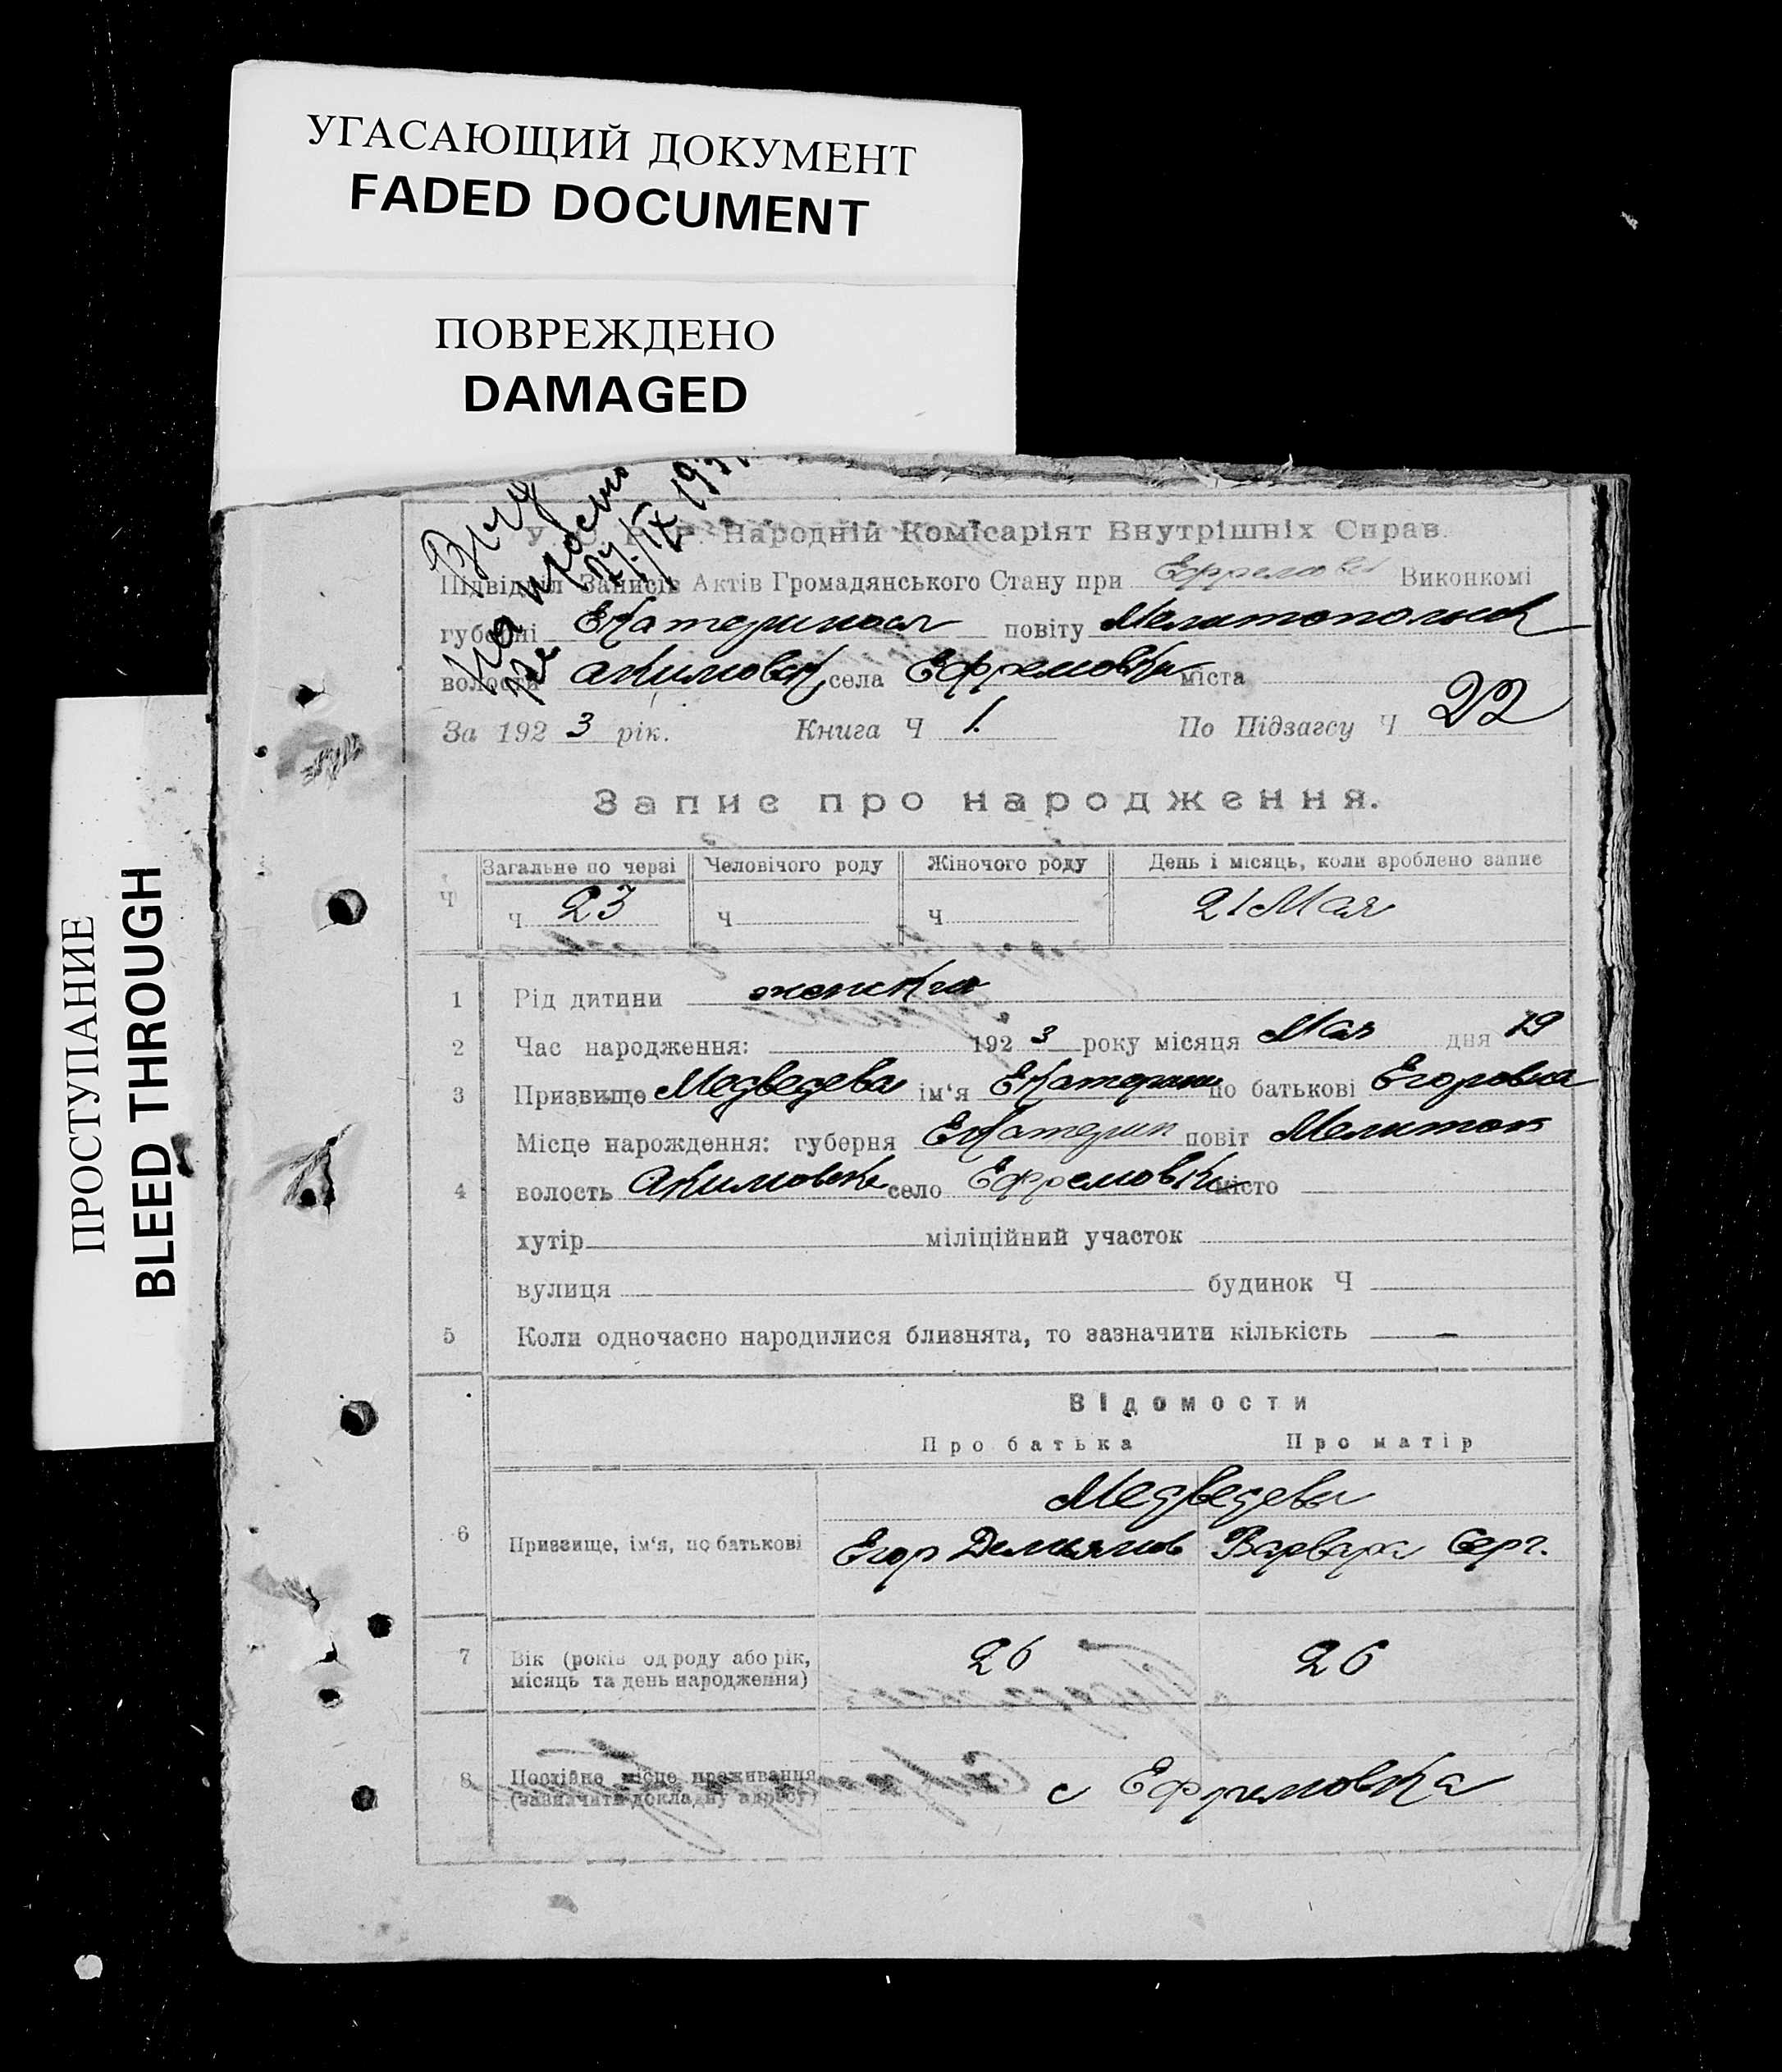 УГАСАЮЩИЙ ДОКУМЕНТ
FADED DOCUMENT
ПОВРЕЖДЕНО
DAMAGED
ПРОСТУПАНИЕ
BLEED THROUGH
У. С. Р. Р. Народній Комісаріят Внутрішніх Справ.
Підвідділ Записів Актів Громадянського Стану при Ефремовск Виконкомі
губерні Екатериносл повіту Мелитопольск
волости Акимовск села Ефремовка міста
За 1923 рік. Книга Ч 1. По Підзагсу Ч 22
Запис про народження.
Ч Загальне по черзі Человічого роду Жіночого роду День і місяць, коли зроблено запис
Ч 23 Ч Ч 21 Мая
1 Рід дитини женска
2 Час народження: 1923 року місяця Мая дня 19
3 Призвище Медведева ім‘я Екатерина по батькові Егоровна
Місце народження: губерня Екатерин повіт Мелитоп
4 волость Акимовск село Ефремовка місто
хутір міліційний участок
вулиця будинок Ч
5 Коли одночасно народилися близнята, то зазначити кількість —
Відомости
Про батька Про матір
Медведевы
6 Призвище, ім‘я, по батькові Егор Демьянов Варвара Серг.
7 Вік (років од роду або рік, 26 26
місяць та день народження)
8 Постійне місце проживання с Ефремовка
(зазначити докладну адресу)